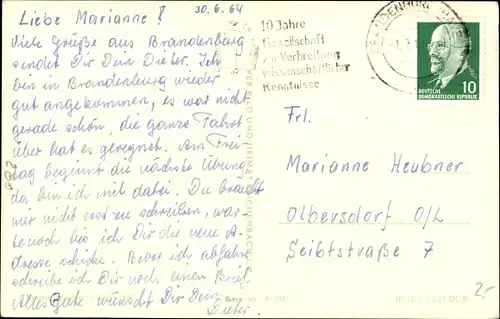 30.6.64
Liebe Marianne!
Viele Grüße aus Brandenburg
sendet Dir Dein Dieter. Ich
bin in Brandenburg wieder
gut angekommen, es war nicht
gerade schön, die ganze Fahrt
über hat es geregnet. Am Frei
tag beginnt die nächste Übung,
da bin ich mit dabei. Du brauchst
mir nicht erst zu schreiben, war
te noch bis ich Dir die neue A
dresse schicke. Bevor ich abfahre
schreibe ich Dir noch einen Brief.
Alles Gute wünscht Dir Dein
Dieter.
10 Jahre
Gesellschaft
zur Verbreitung
wissenschaftlicher
Kenntnisse
BRANDENBURG
10
DEUTSCHE
DEMOKRATISCHE REPUBLIK
Frl.
Marianne Heubner
Olbersdorf O/L
Seibtstraße 7
2,-